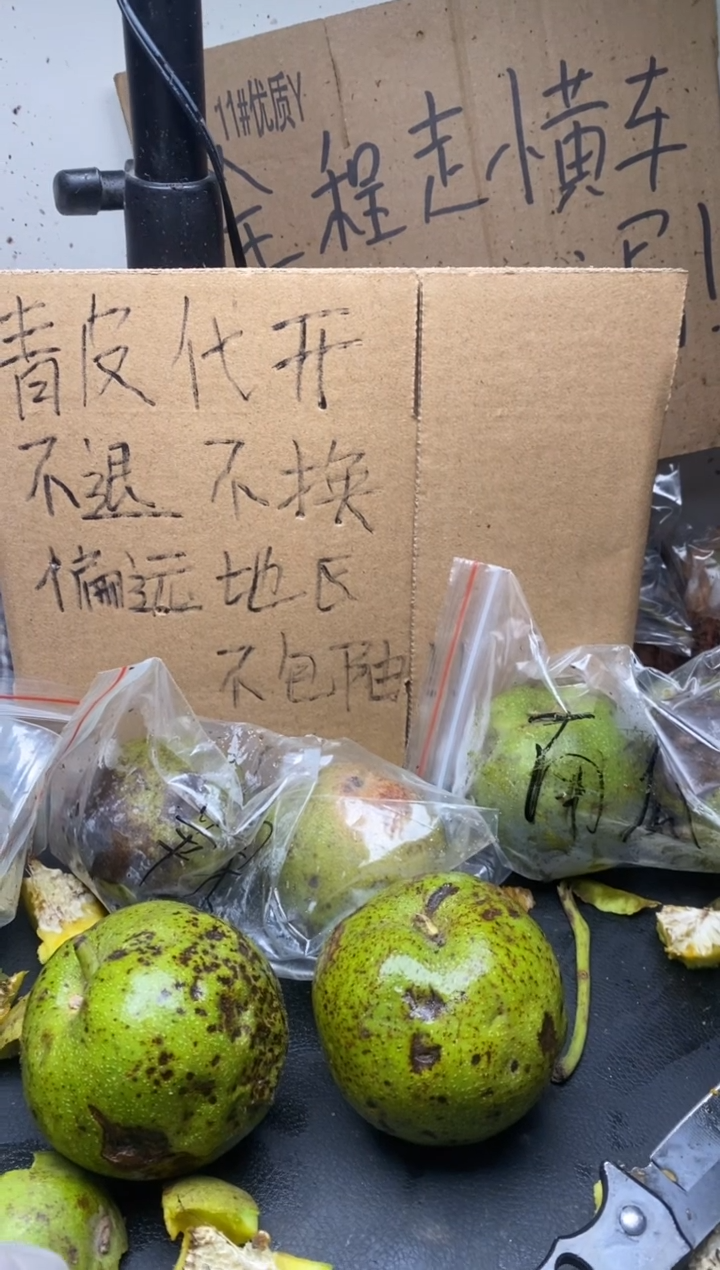 11#优质Y
全程走小黄车
青皮代开
不退不换
偏远地区
不包邮